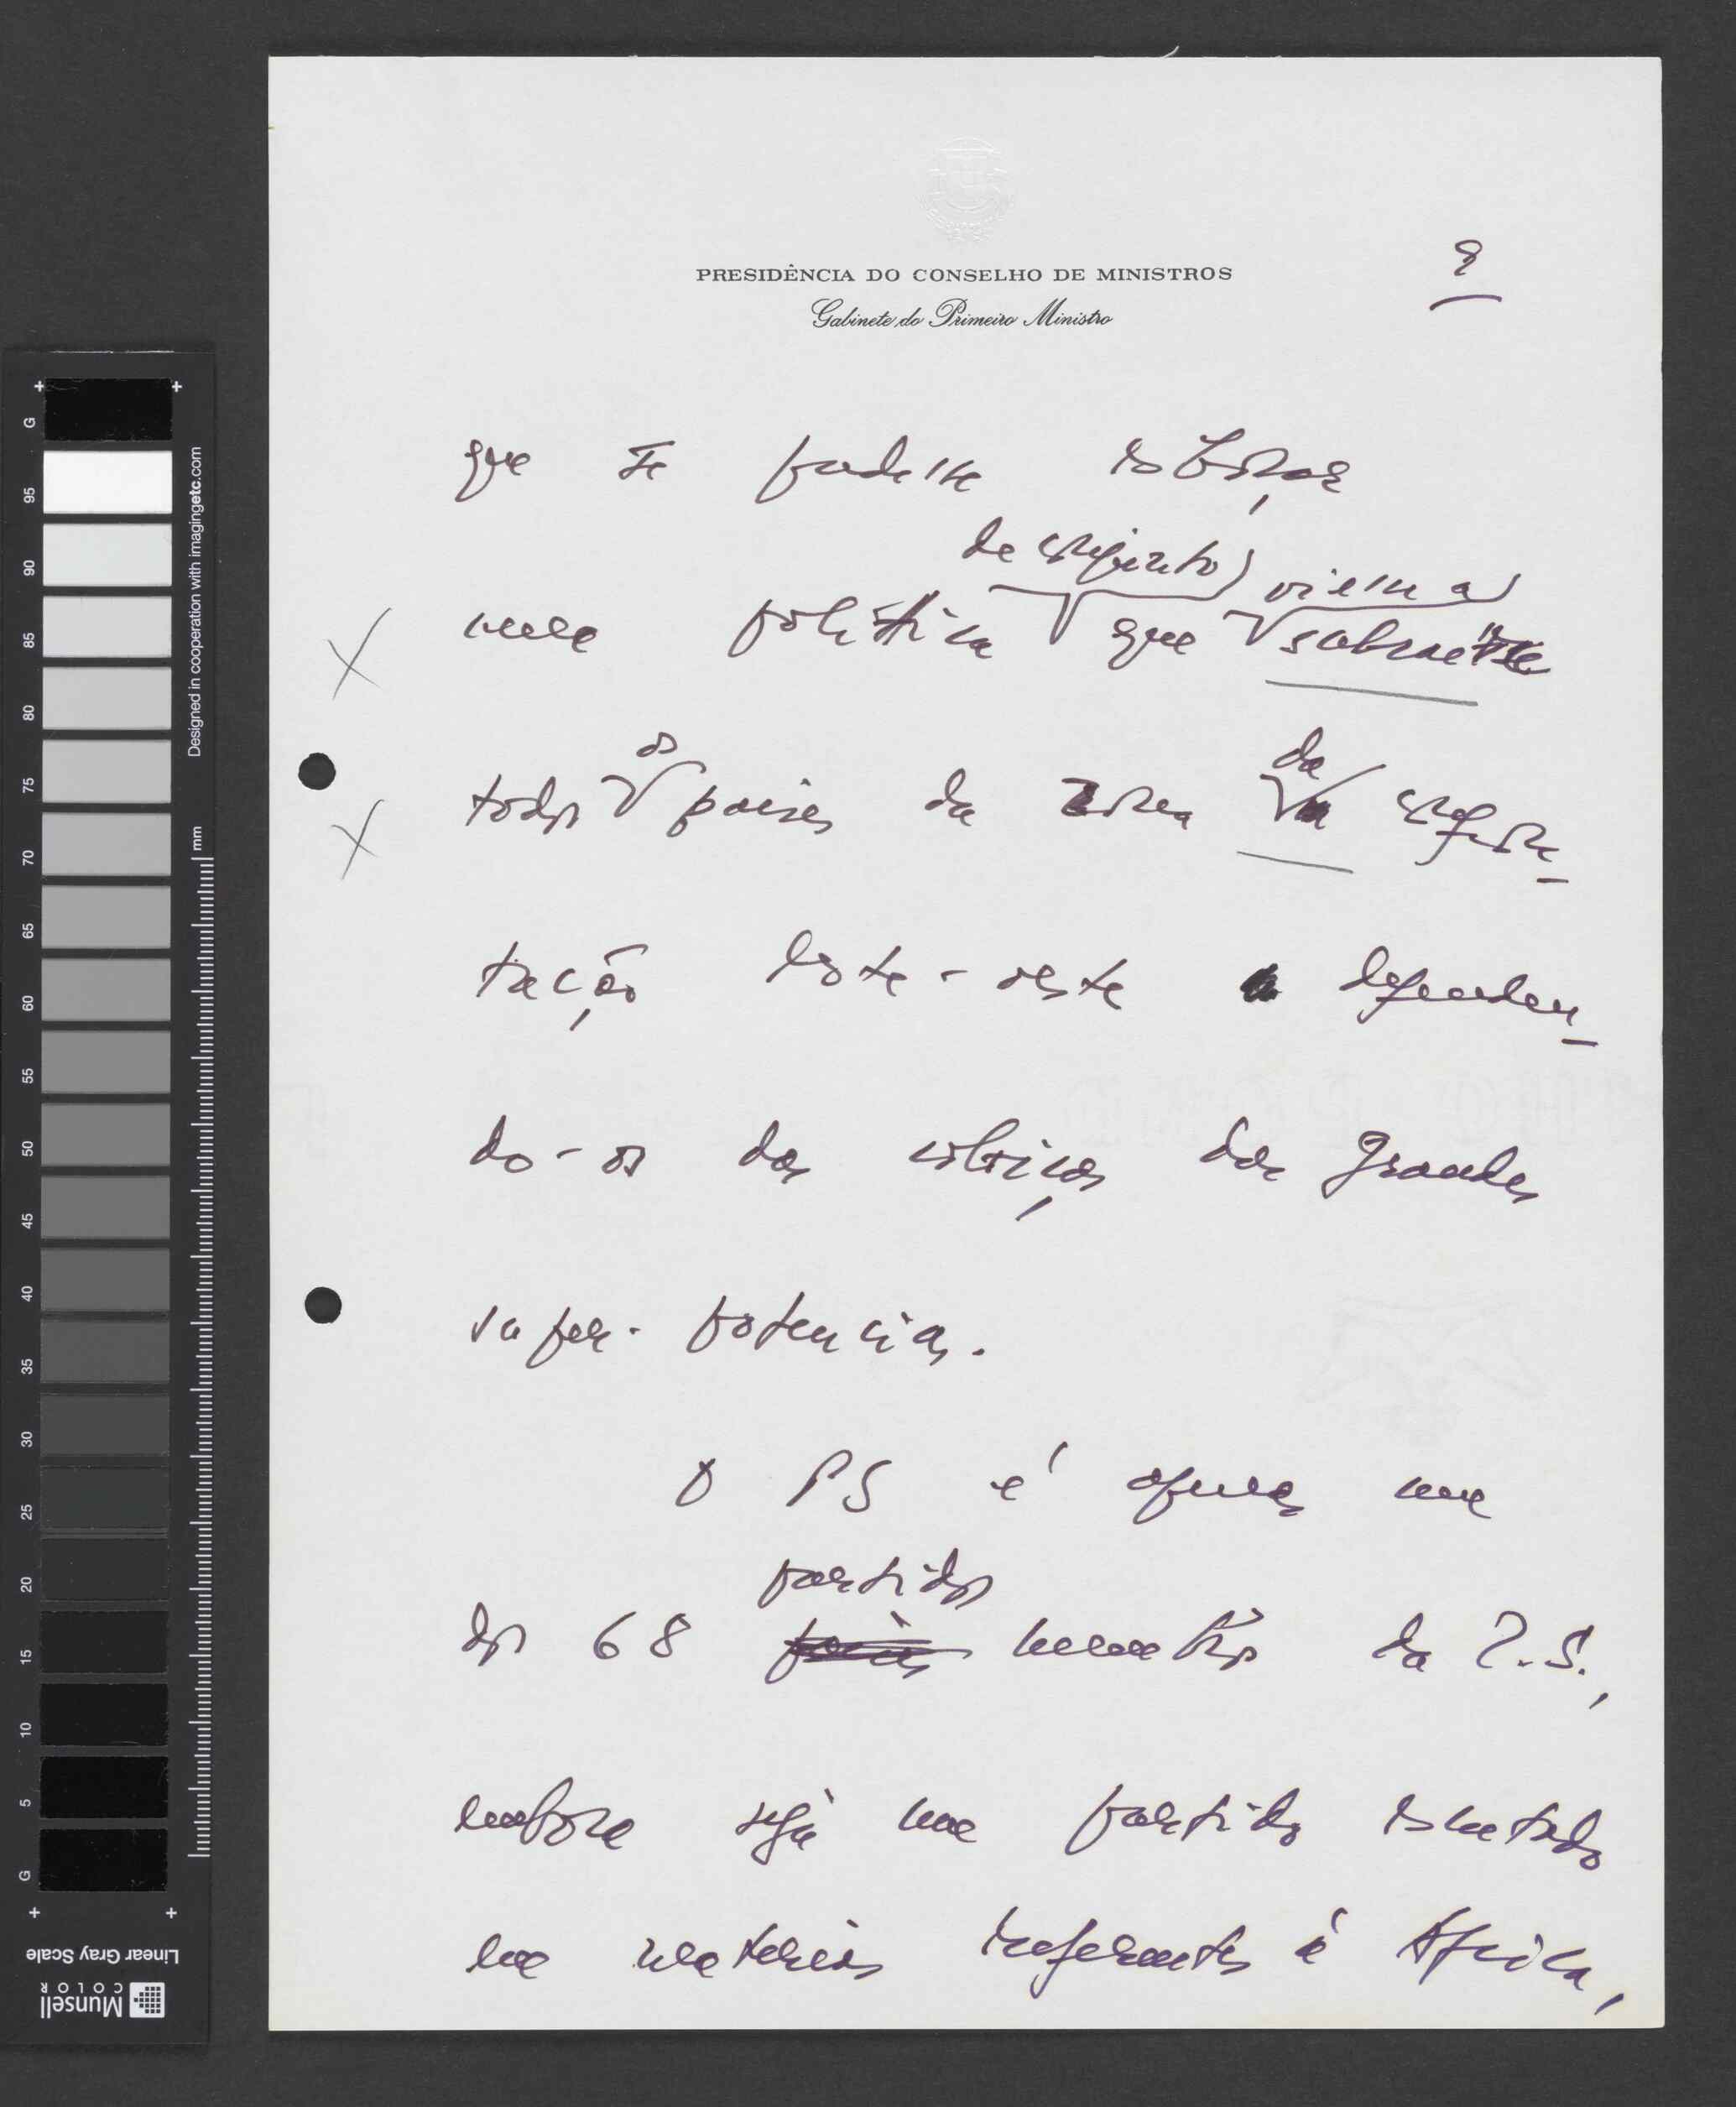 9
PRESIDÊNCIA DO CONSELHO DE MINISTROS
Gabinete do Primeiro Ministro
que se pudesse esboçar
de conjunto viesse a
uma política que subtrair
os da
todos países da zona
tação leste-oeste defenden-
do-os das cobiças das grandes
super-potencias.
O PS é apenas um
partidos
dos 68 países membros da I.S.,
embora seja um partido escutado
em matérias referentes à Africa,
G
95
90
85
80
75
70
65
60
55
50
45
40
35
30
25
20
15
10
5
G
mm
Designed in cooperation with imagingetc.com
Linear Gray Scale
Munsell
COLOR